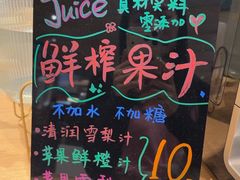 Juice
真材实料
零添加
鲜榨果汁
不加水 不加糖
·清润雪梨汁
·苹果鲜橙汁
10